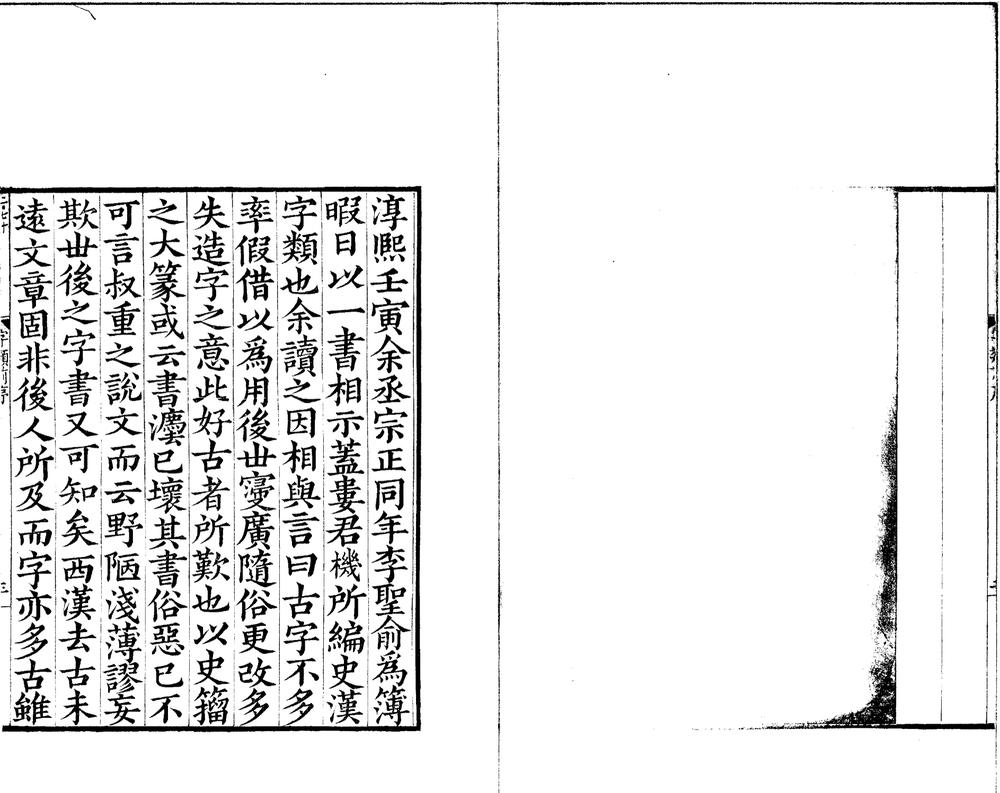 淳熙壬寅余丞宗正同年李聖俞爲簿
暇日以一書相示蓋婁君機所編史漢
字類也余讀之因相與言曰古字不多
率假借以爲用後世寖廣隨俗更改多
失造字之意此好古者所歎也以史籀
之大篆或云書灋已壞其書俗惡已不
可言叔重之說文而云野陋淺薄謬妄
欺世後之字書又可知矣西漢去古未
遠文章固非後人所及而字亦多古雖
字類前序
三